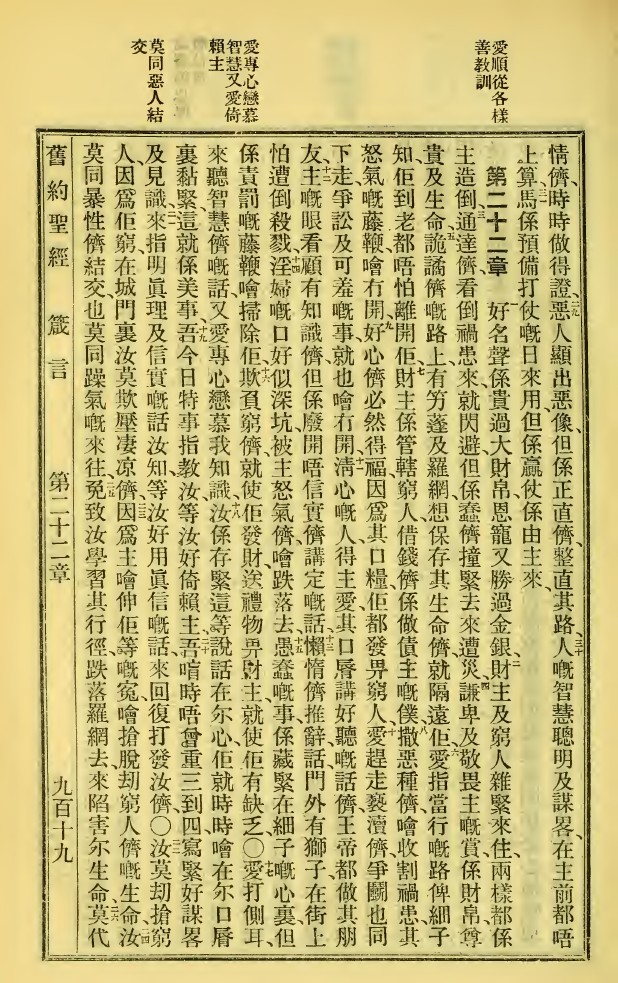 愛順從各樣
善教訓
愛專心戀慕
智慧又愛倚
賴主
莫同惡人結
交
情儕、時時做得證、二九惡人顯出惡像、但係正直儕、整直其路、三十人嘅智慧聰明及謀畧、在主前都唔
上算、三一馬係預備打仗嘅日來用、但係贏仗係由主來、
第二十二章 一好名聲係貴過大財帛、恩寵又勝過金銀、二財主及窮人雜緊來住、兩樣都係
主造倒、三通達儕看倒禍患來、就閃避、但係蠢儕撞緊去來遭災、四謙卑及敬畏主嘅賞係財帛、尊
貴及生命、五詭譎儕嘅路上、有竻蓬及羅網、想保存其生命儕、就隔遠佢、六愛指當行嘅路俾細子
知、佢到老都唔怕離開佢、七財主係管轄窮人、借錢儕係做債主嘅僕、八撒惡種儕、噲收割禍患、其
怒氣嘅藤鞭噲冇開、九好心儕必然得福、因爲其口糧佢都發畀窮人、十愛趕走褻瀆儕、爭鬭也同
下走、爭訟及可羞嘅事、就也噲冇開、十一淸心嘅人得主愛、其口唇講好聽嘅話儕、王帝都做其朋
友、十二主嘅眼看顧有知識儕、但係廢開唔信實儕講定嘅話、十三懶惰儕推辭話、門外有獅子、在街上
怕遭倒殺戮、十四淫婦嘅口好似深坑、被主怒氣儕噲跌落去、十五愚蠢嘅事係藏緊在細子嘅心裏、但
係責罰嘅藤鞭噲掃除佢、十六欺負窮儕、就使佢發財、送禮物畀財主、就使佢有缺乏、〇十七愛打側耳
來聽智慧儕嘅話、又愛專心戀慕我知識、十八汝係存緊這等說話在尔心、佢就時時噲在尔口唇
裏黏緊、這就係美事、十九吾今日特事指教汝、等汝好倚賴主、二十吾喑時唔曾重三到四寫緊好謀畧
及見識來、二一指明眞理及信實嘅話汝知、等汝好用眞信嘅話、來回復打發汝儕、〇二二汝莫刧搶窮
人、因爲佢窮、在城門裏汝莫欺壓凄凉儕、二三因爲主噲伸佢等嘅寃、噲搶脫刧窮人儕嘅生命、二四汝
莫同暴性儕結交、也莫同躁氣嘅來往、二五免致汝學習其行徑、跌落羅網去、來陷害尔生命、二六莫代
舊約聖經 箴言 第二十二章 九百十九